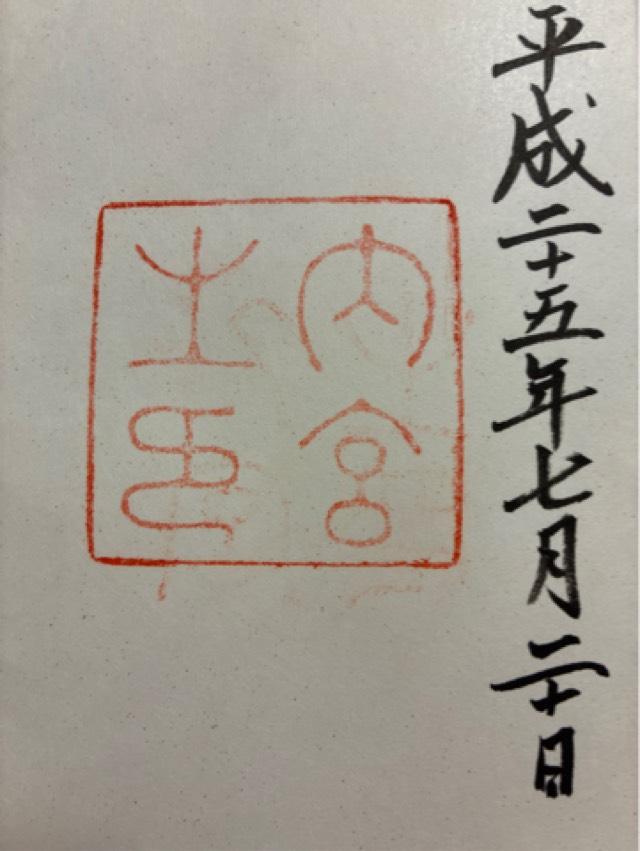 平成二十五年七月二十日
内宮
之印